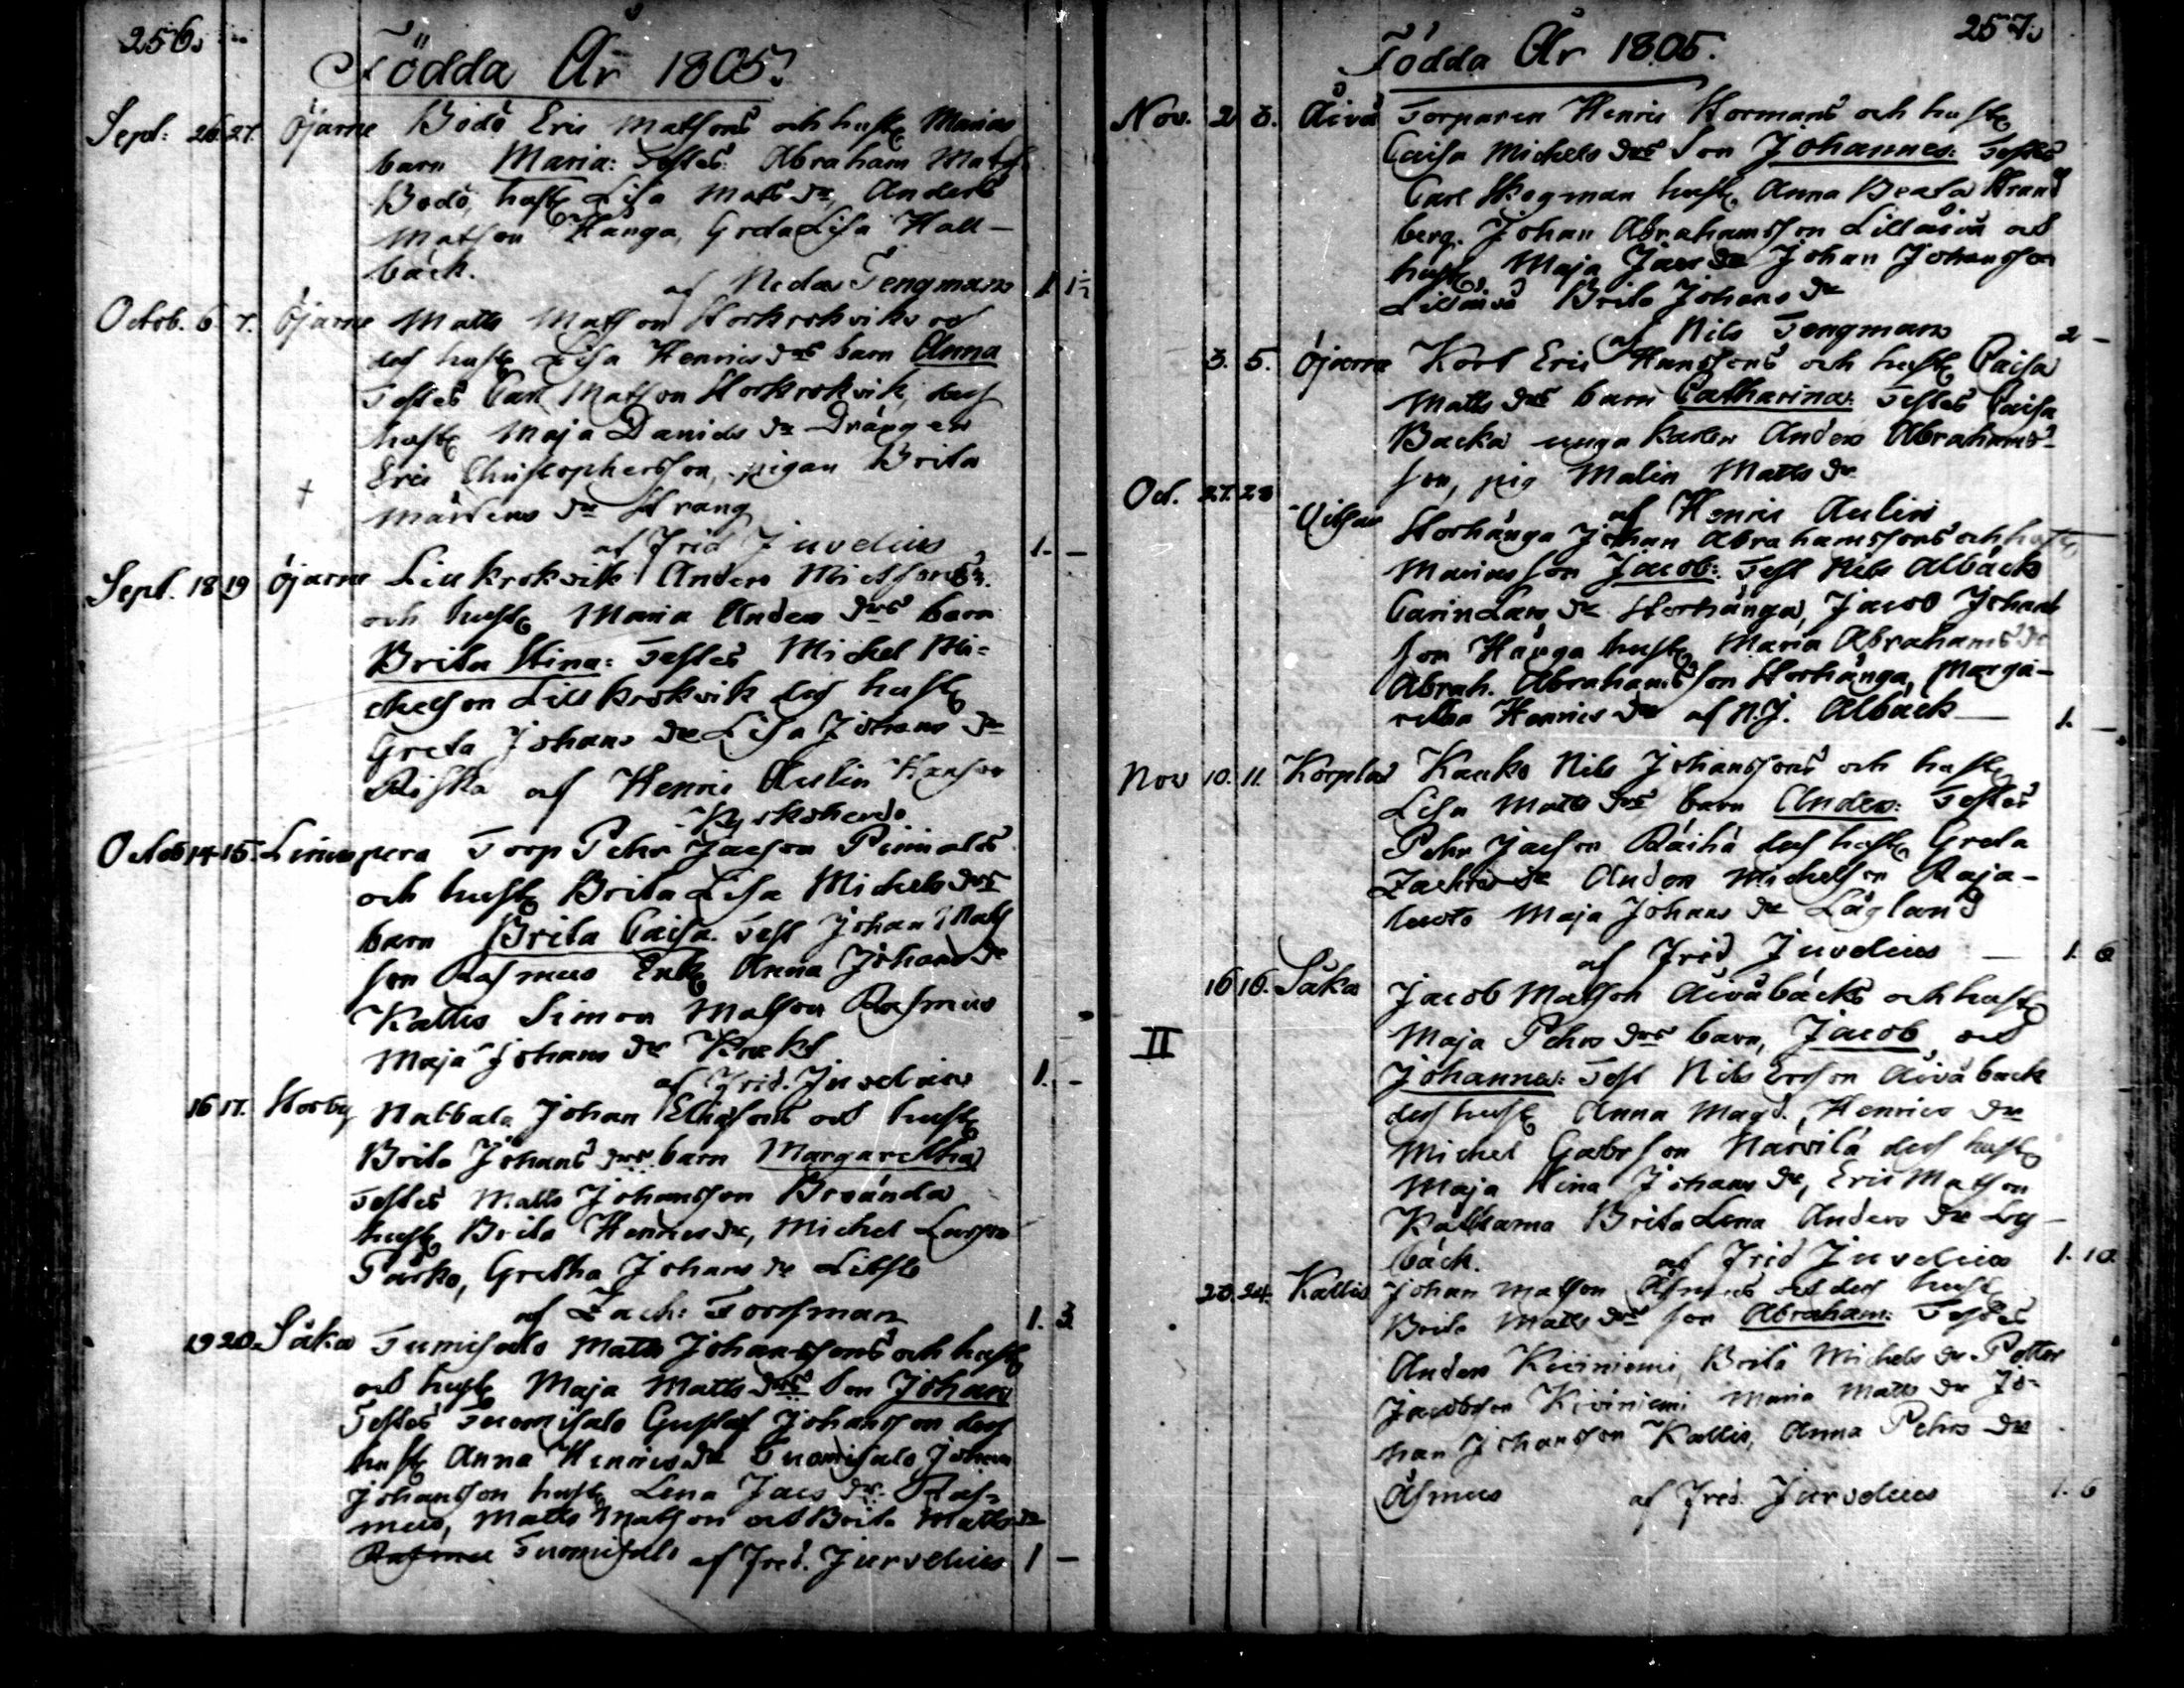 256.
Födda År 1805.
Sept: 26. 27. Öjarne Bodö Eric Matsons och hust Marias
barn Maria: Testes: Abraham Mats
Bodö, hust Lisa Mats dr, Anders
Matson Hänga, Greta Lisa Hall-
bäck.
af Tengman 1 1/2
Octob. 6 7. Öjarne Matts Matson Storkrokviks och
des hust Lisa Henrics drs barn Anna
Testes Carl Matson Storkrokvik, des
hust Maja Daniels dr Drängen
Eric Christophersson, pigan Brita
† Mårtens dr Strang
af Frid Juvelius 1. –
Sept. 18 19 Öjarne Lillkrokvik Anders Micksons
och hust Maria Anders drs barn
Brita Stina: Testes Mickel Mi-
chelson Lillkrokvik des hust
Greta Johans dr Lisa Johans dr
Riska af Henric Aulin
Kyrkoherde
Octob 14 15. Liminpera Torp Pehr Jacson
och hust Brita Lisa Mickels drs
barn Brita Caisa. Test Johan Mats
son Rasmus Enk Anna Johans dr
Kallis Simon Matson Rasmus
Maja Johans dr
af Frid. Juvelius 1. –
16 17. Storby Natbala Johan och hust
Brita Johans drs barn Margaretha
Testes Matts Johansson Brvända
hust Brita Henrics dr, Michel
Pärko, Gretha Johans dr
af Zach: Forsman 1. 3.
19 20. Såka Tumisalo Matts Johanssons och hust
och hust Maja Matts drs Son Johan
Testes Tuomisalo Gustaf Johansson des
hust Anna Henrics dr Tuomisalo Johan
Johansson hust Lena Jacs dr. Ras-
mus, Matts Matson och Brita Matts dr
Rasmus Tuomisalo af Fred. Jurvelius 1 –
257.
Födda År 1805.
Nov. 2 3. Åivo Torparen Henric Stormans och hust
Caisa Mickels drs Son Johannes: Testes
Carl Skogman hust. Anna Beata Strand
berg. Johan Abrahamsson Lillåivo och
hust. Maja Jacs dr Johan Johansson
Lillåivo Brita Johans dr
af Nils Tengman 2 –
3. 5. Öjarne Kort Eric Hanssons och hust Caisa
Matts drs barn Catharina: Testes Caisa
Backa unga karlen Anders Abrahams-
son, pig Malin Matts dr
af Henric Aulin
Oct. 27. 28 Storhänga Johan Abrahamssons och hust
Marias son Jacob: Test Nils Albäck
Carin Lars dr Storhänga, Jacob Johans
son Hänga hust Maria Abrahams dr
Abrah. Abrahamsson Storhänga, Marga-
retha Henrics dr af N.J. Alback – 1. –
Nov 10. 11. Korplax Kauko Nils Johanssons och hust
Lisa Matts drs barn Anders: Testes
Pehr Jacson Räihä des hust Greta
Zachris dr Anders Michelson Raja-
luoto Maja Johans dr Lågland
af Frid Juvelius – 1. 6
16 16. Såka Jacob Matson Åivobäcks och hust
II Maja Pehrs drs barn, Jacob och
Johannes: Test Nils Ersson Åivoback
des hust Anna Magd. Henrics dr
Michel Gabrson Narvilä des hust
Maja Stina Johans dr, Eric Matson
Kåtkama Brita Lena Anders dr Ly-
bäck. af Frid Juvelius 1. 10.
23. 24. Kallis Johan Matson Åsmus och des hust
Brita Matts drs son Abraham: Testes
Anders Kiviniemi, Brita Michels dr Petter
Jacobson Kiviniemi Maria Matts dr Jo-
han Johansson Kallis, Anna Pehrs dr
Åsmus af Fred. Jurvelius 1. 6